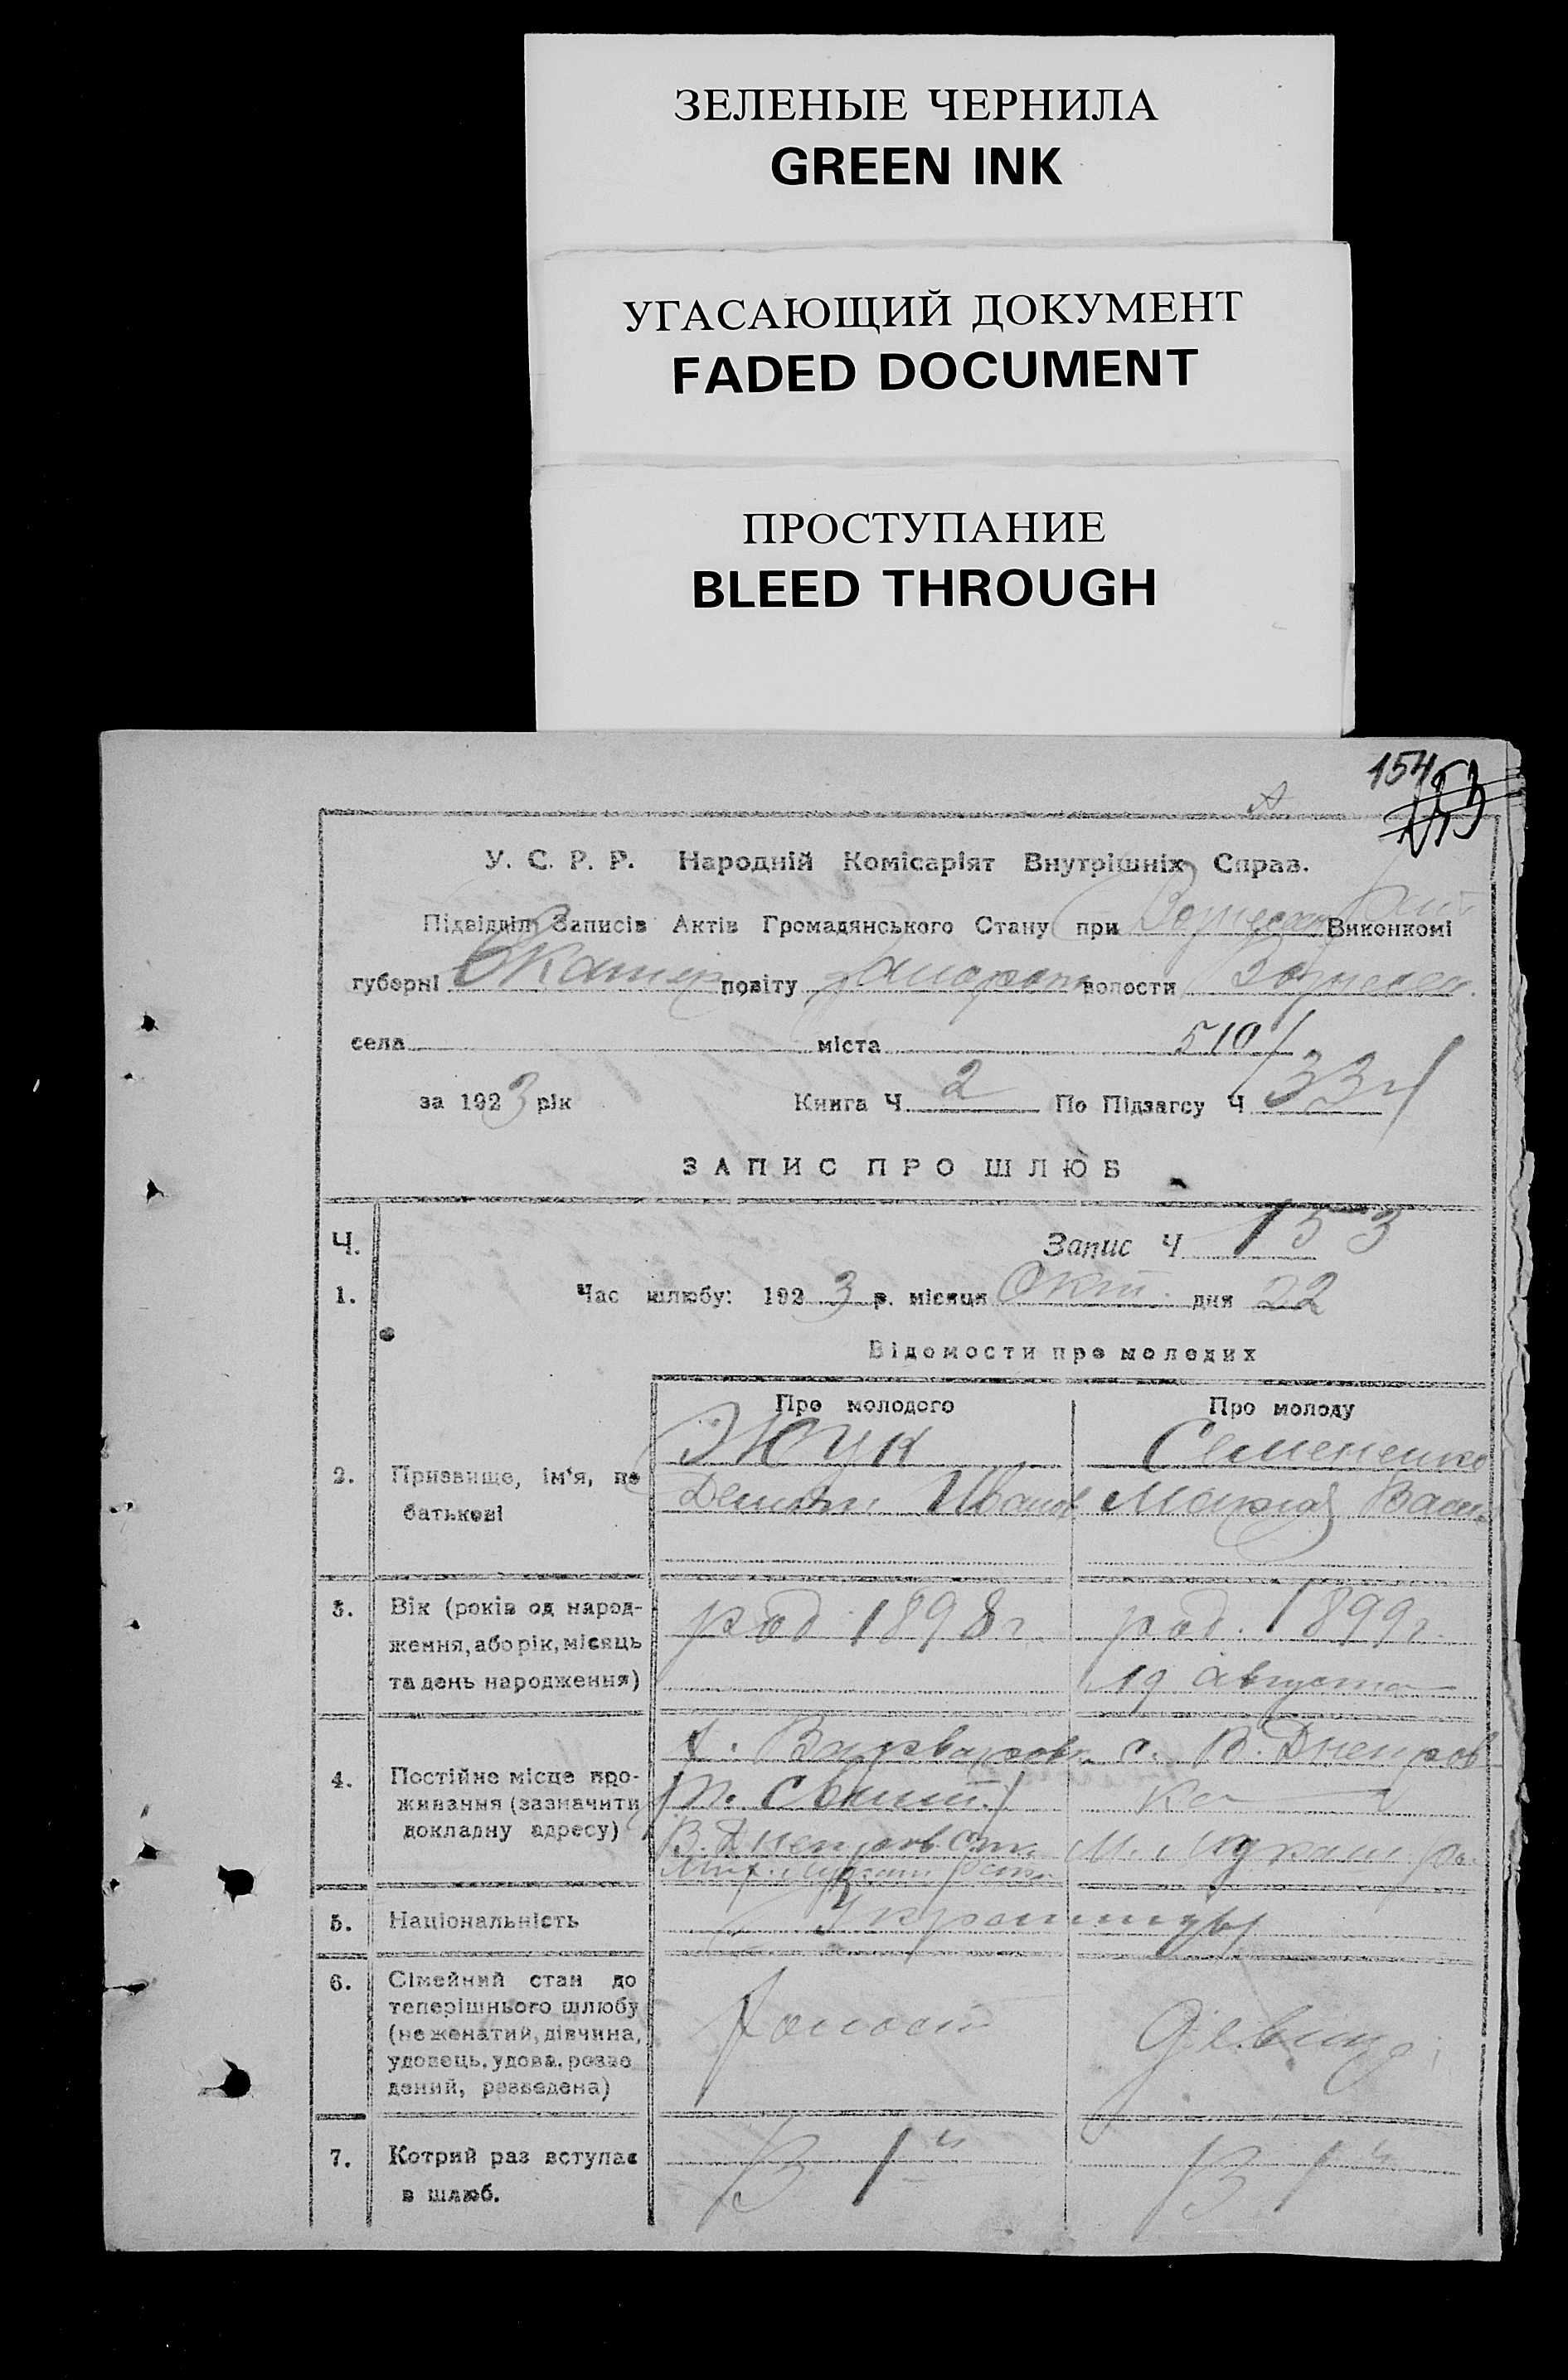 ЗЕЛЕНЫЕ ЧЕРНИЛА
GREEN INK
УГАСАЮЩИЙ ДОКУМЕНТ
FADED DOCUMENT
ПРОСТУПАНИЕ
BLEED THROUGH
154 153
У. С. Р. Р. Народній Комісаріят Внутрішніх Справ.
Підвідділ Записів Актів Громадянського Стану при Виконкомі
губерні Екатер повіту волости
села міста 510
за 1923 рік Книга Ч 2 По Підзагсу Ч 334
ЗАПИС ПРО ШЛЮБ
Ч. Запис Ч 153
1. Час шлюбу: 1923 р. місяця Окт. дня 22
Відомости про молодих
Про молодого Про молоду
Жук Семененко
2. Призвище, ім'я, по батькові
Демьян Иванов Мария Васил
3. Вік (років од народ-
ження, або рік, місяць
та день народження)
род 1898 г. род. 1899 г.
19 августа
4. Постійне місце про-
живання (зазначити
докладну адресу)
х. Варваровк с. В. Днепров
ка
В. Днепров.
5. Національність Украинцы
6. Сімейний стан до
теперішнього шлюбу
(не женатий, дівчина,
удовець, удова, розве
дений, розведена)
холост девица
7. Котрий раз вступає
в шлюб.
В 1й В 1й